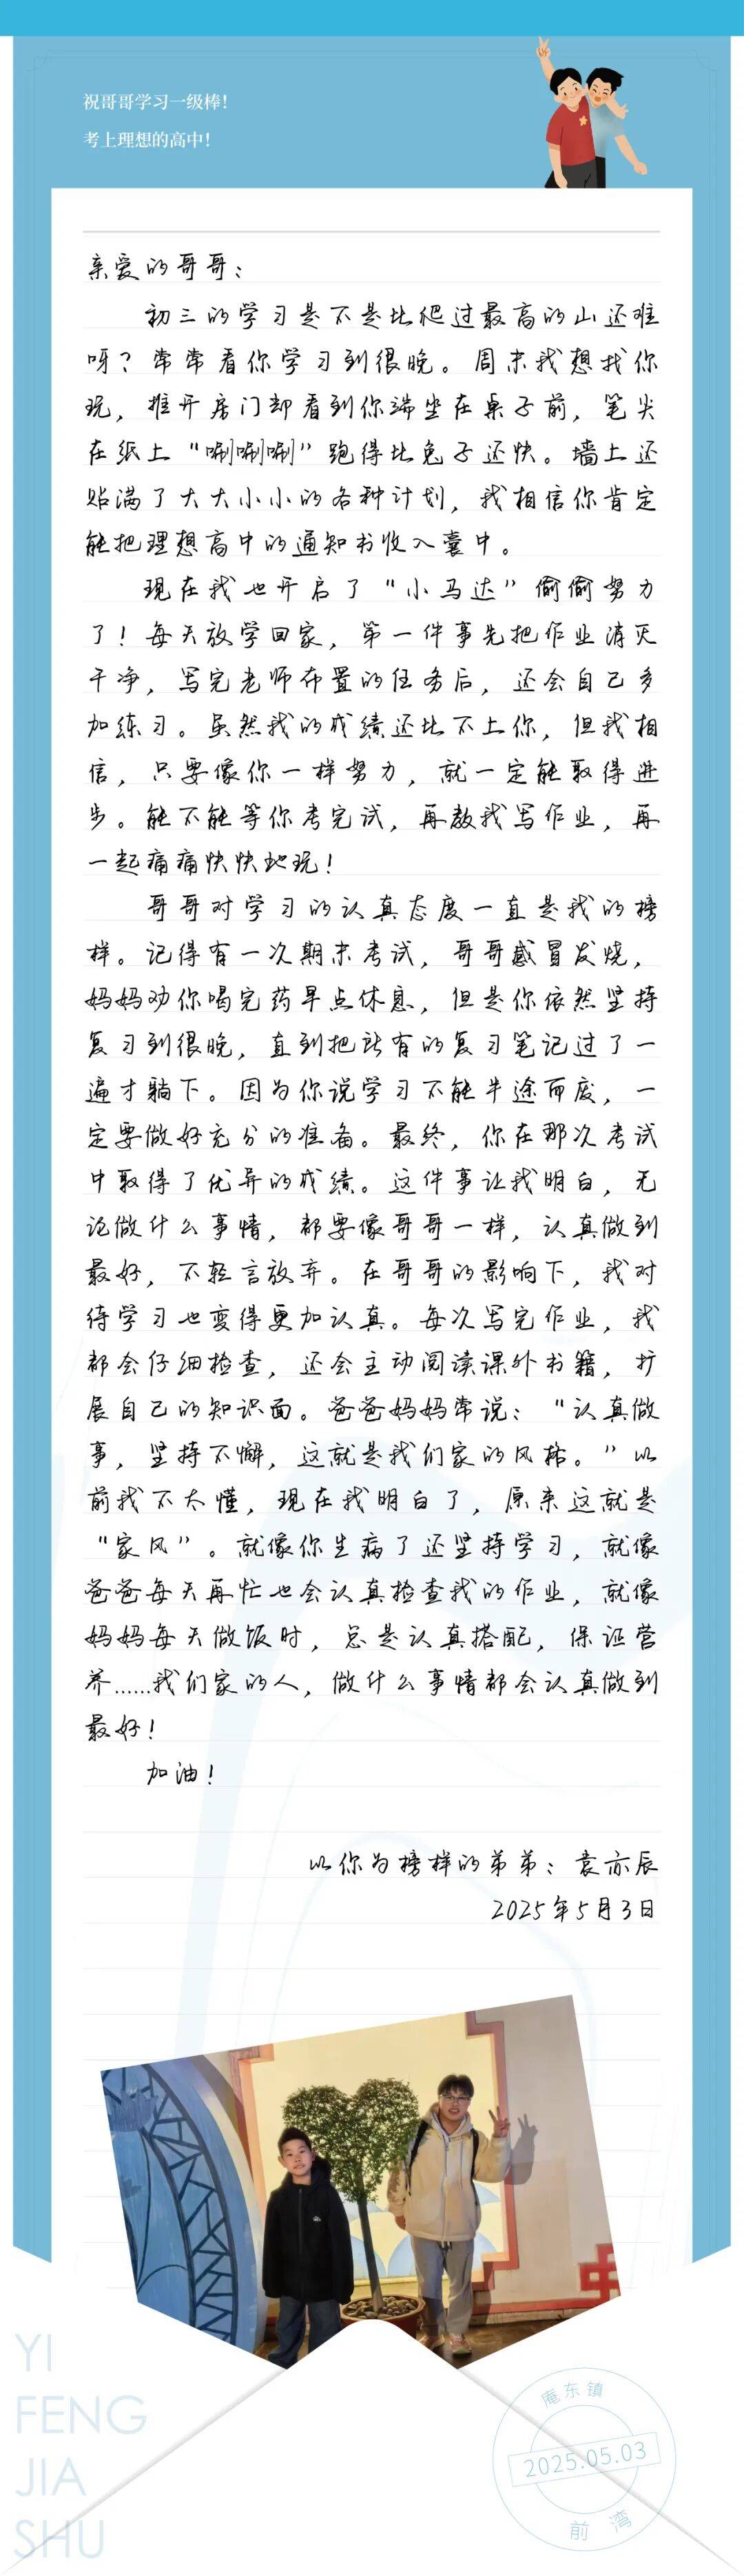 祝哥哥学习一级棒！
考上理想的高中！
亲爱的哥哥：
初三的学习是不是比爬过最高的山还难
呀？常常看你学习到很晚。周末我想找你
玩，推开房门却看到你端坐在桌子前，笔尖
在纸上“唰唰唰”跑得比兔子还快。墙上还
贴满了大大小小的各种计划，我相信你肯定
能把理想高中的通知书收入囊中。
现在我也开启了“小马达”偷偷努力
了！每天放学回家，第一件事先把作业消灭
干净，写完老师布置的任务后，还会自己多
加练习。虽然我的成绩还比不上你，但我相
信，只要像你一样努力，就一定能取得进
步。能不能等你考完试，再教我写作业，再
一起痛痛快快地玩！
哥哥对学习的认真态度一直是我的榜
样。记得有一次期末考试，哥哥感冒发烧，
妈妈劝你喝完药早点休息，但是你依然坚持
复习到很晚，直到把所有的复习笔记过了一
遍才躺下。因为你说学习不能半途而废，一
定要做好充分的准备。最终，你在那次考试
中取得了优异的成绩。这件事让我明白，无
论做什么事情，都要像哥哥一样，认真做到
最好，不轻言放弃。在哥哥的影响下，我对
待学习也变得更加认真。每次写完作业，我
都会仔细检查，还会主动阅读课外书籍，扩
展自己的知识面。爸爸妈妈常说：“认真做
事，坚持不懈，这就是我们家的风格。”以
前我不大懂，现在我明白了，原来这就是
“家风”。就像你生病了还坚持学习，就像
爸爸每天再忙也会认真检查我的作业，就像
妈妈每天做饭时，总是认真搭配，保证营
养……我们家的人，做什么事情都会认真做到
最好！
加油！
以你为榜样的弟弟：袁亦辰
2025年5月3日
YI
FENG
JIA
SHU
庵东镇
2025.05.03
前湾